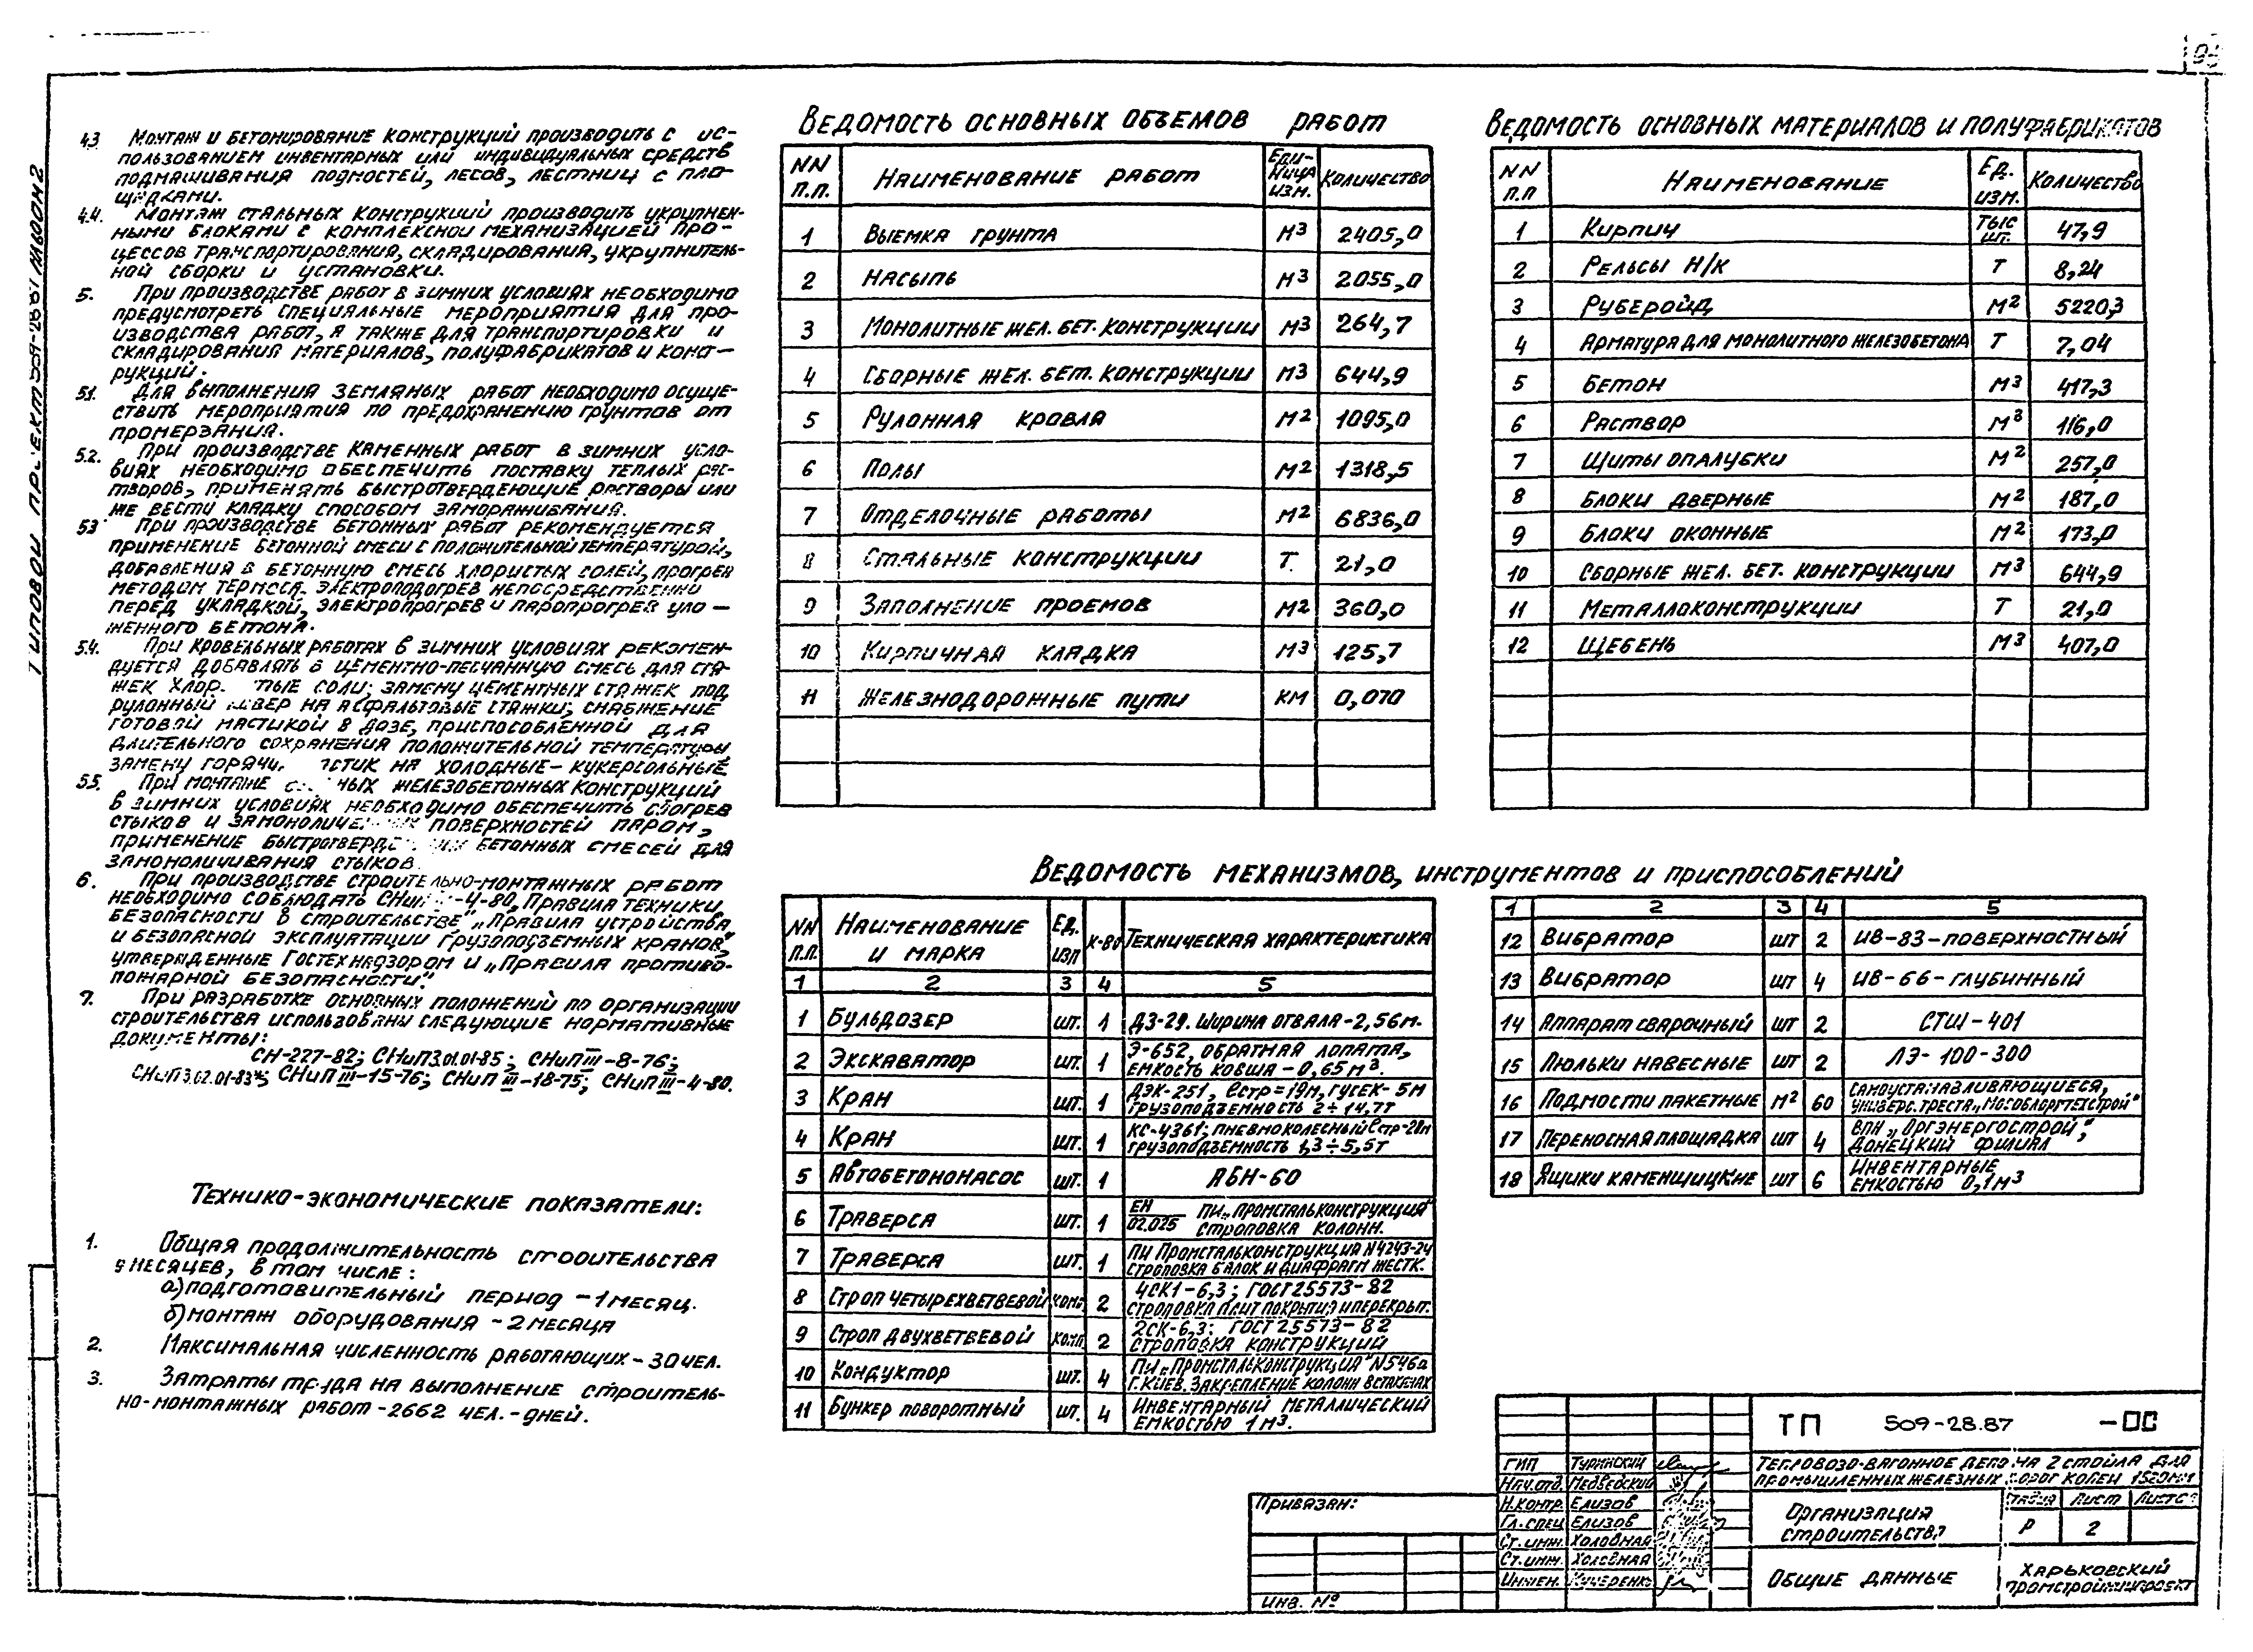 4.3 Монтаж и бетонирование конструкций производить с ис-
пользованием инвентарных или индивидуальных средств
подмащивания подмостей, лесов, лестниц с пло-
щадками.
4.4. Монтаж стальных конструкций производить укрупнен-
ными блоками с комплексной механизацией про-
цессов транспортирования, складирования, укрупнитель-
ной сборки и установки.
5. При производстве работ в зимних условиях необходимо
предусмотреть специальные мероприятия для про-
изводства работ, а также для транспортировки и
складирования материалов, полуфабрикатов и конст-
рукций.
5.1. Для выполнения земляных работ необходимо осуще-
ствить мероприятия по предохранению грунтов от
промерзания.
5.2. При производстве каменных работ в зимних усло-
виях необходимо обеспечить поставку теплых рас-
творов, применять быстротвердеющие растворы или
же вести кладку способом замораживания.
5.3 При производстве бетонных работ рекомендуется
применение бетонной смеси с положительной температурой,
добавления в бетонную смесь хлористых солей, прогрев
методом термоса, электроподогрев непосредственно
перед укладкой, электропрогрев и паропрогрев уло-
женного бетона.
5.4. При кровельных работах в зимних условиях рекомен-
дуется добавлять в цементно-песчанную смесь для стя-
жек соли; замену цементных стяжек под
рулонный на асфальтовые стяжки; снабжение
готовой мастикой в дозе, приспособленной для
длительного сохранения положительной температуры
замену на холодные-кукерсольные
5.5. При монтаже железобетонных конструкций
в зимних условиях необходимо обеспечить обогрев
стыков и поверхностей паром,
применение бетонных смесей для
замоноличивания стыков.
6. При производстве строительно-монтажных работ
необходимо соблюдать СНиП -4-80, Правила техники
безопасности в строительстве", „Правила устройства
и безопасной эксплуатации грузоподъемных кранов",
утвержденные Гостехнадзором и „Правила противо-
пожарной безопасности".
7. При разработке основных положений по организации
строительства использованы следующие нормативные
документы:
СН-227-82; СНиП3.01.01-85; СНиПIII-8-76;
СНиП3.02.01-83*; СНиП III-15-76; СНиП III-18-75; СНиПIII-4-80.
Технико-экономические показатели:
1. Общая продолжительность строительства
9 месяцев, в том числе:
а) подготовительный период -1 месяц.
б) монтаж оборудования -2 месяца
2. Максимальная численность работающих-30 чел.
3. Затраты труда на выполнение строитель-
но-монтажных работ-2662 чел.-дней.
Ведомость основных объемов работ
NN п.п. Наименование работ Еди-ница изм. Количество
1 Выемка грунта м3 2405,0
2 Насыпь м3 2055,0
3 Монолитные жел. бет. конструкции м3 264,7
4 Сборные жел. бет. конструкции м3 644,9
5 Рулонная кровля м2 1095,0
6 Полы м2 1318,5
7 Отделочные работы м2 6836,0
8 Стальные конструкции т. 21,0
9 Заполнение проемов м2 360,0
10 Кирпичная кладка м3 125,7
11 Железнодорожные пути км 0,070
Ведомость основных материалов и полуфабрикатов
NN п.п Наименование Ед. изм. Количество
1 Кирпич тыс шт. 47,9
2 Рельсы н/к т 8,24
3 Рубероид м2 5220,3
4 Арматура для монолитного железобетона т 7,04
5 Бетон м3 417,3
6 Раствор м3 116,0
7 Щиты опалубки м2 257,0
8 Блоки дверные м2 187,0
9 Блоки оконные м2 173,0
10 Сборные жел. бет. конструкции м3 644,9
11 Металлоконструкции т 21,0
12 Щебень м3 407,0
Ведомость механизмов, инструментов и приспособлений
NN п.п. Наименование и марка Ед. изп к-во Техническая характеристика
1 2 3 4 5
1 Бульдозер шт. 1 ДЗ-29. Ширина отвала-2,56м.
2 Экскаватор шт. 1 Э-652, обратная лопата,
емкость ковша-0,65м3.
3 Кран шт. 1 ДЭК-251, ℓстр=19м, гусек-5м
грузоподъемность 2÷14,7т
4 Кран шт. 1 КС-4361; пневмоколесный ℓстр-20м
грузоподъемность 1,3÷5,5т
5 Автобетононасос шт. 1 АБН-60
6 Траверса шт. 1 ЕН 02.025 ПИ„Промстальконструкция"
строповка колонн.
7 Траверса шт. 1 ПИ Промстальконструкция N4243-24
строповка балок и диафрагм жестк.
8 Строп четырехветвевой комп. 2 4СК1-6,3; ГОСТ 25573-82
строповка плит покрытия и перекрыт.
9 Строп двухветвевой комп. 2 2СК-6,3; ГОСТ 25573-82
строповка конструкций
10 Кондуктор шт. 4 ПИ„Промстальконструкция" N546а
г.Киев. Закрепление колонн в стаканах
11 Бункер поворотный шт. 4 Инвентарный металлический
емкостью 1м3.
1 2 3 4 5
12 Вибратор шт 2 ИВ-83-поверхностный
13 Вибратор шт 4 ИВ-66-глубинный
14 Аппарат сварочный шт 2 СТШ-401
15 Люльки навесные шт 2 ЛЭ-100-300
16 Подмости пакетные м2 60 Самоустанавливающиеся,
универс. треста „Мособлоргтехстрой"
17 Переносная площадка шт 4 ВПН „Оргэнергострой",
Донецкий филиал
18 Ящики каменщицкие шт 6 Инвентарные
емкостью 0,1м3
ТП 509-28.87 -ОС
Тепловозо-вагонное депо на 2 стойла для
промышленных железных дорог колеи 1520мм
ГИП Туринский
Нач.отд. Медведский
Н.контр. Елизов
Гл.спец Елизов
Ст.инж. Холодная
Ст.инж. Холодная
Инжен. Кучеренко
Организация
строительства
Стадия Лист Листов
Р 2
Общие данные
Харьковский
Промстройниипроект
Привязан:
Инв. №